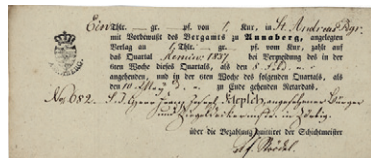 Ein Thlr. — gr. — pf. von 1 Kux, in St. Andreas Fdgr.
mit Vorbewußt des Bergamts zu Annaberg, angelegten
Verlag an 1 Thlr. — gr. — pf. vom Kux, zahlt auf
das Quartal Reminisc. 1837 bei Vermeidung des in der
6ten Woche dieses Quartals, als den
angehenden, und in der 6ten Woche des folgenden Quartals, als
den 10 May zu Ende gehenden Retardats.
No. 682. Herr Franz Joseph angesehener Bürger
und in
über die Bezahlung quittiret der Schichtmeister
ANNABERG